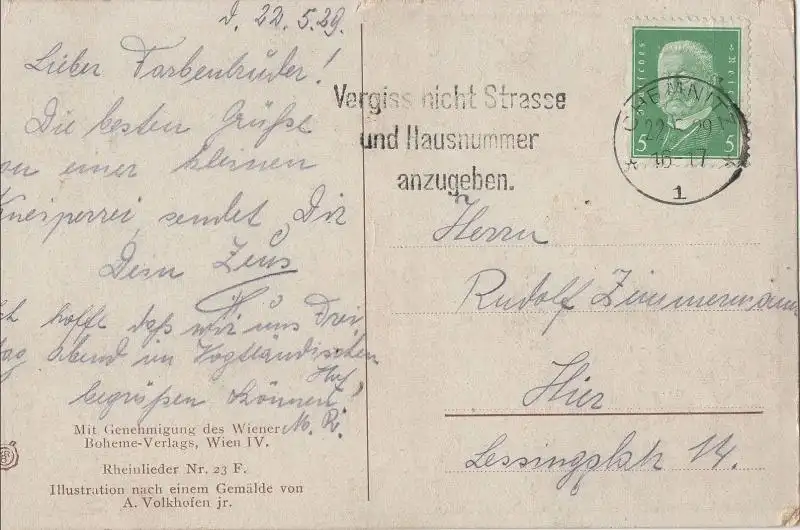 d. 22.5.29.
Lieber Farbenbruder!
Die besten Grüße
von einer kleinen
Kneiperrei, sendet Dir
Dein Zeus
Ich hofft daß wir uns Frei
tag abend im Vogtländischen
Hof
begrüßen können!
Mit Genehmigung des Wiener
Boheme-Verlags, Wien IV.
Rheinlieder Nr. 23 F.
Illustration nach einem Gemälde von
A. Volkhofen jr.
Deutsches Reich
5 5
CHEMNITZ
22.5.29
16-17
1
Vergiss nicht Strasse
und Hausnummer
anzugeben.
Herrn
Rudolf Zimmermann
Hier
Lessingplatz 14.